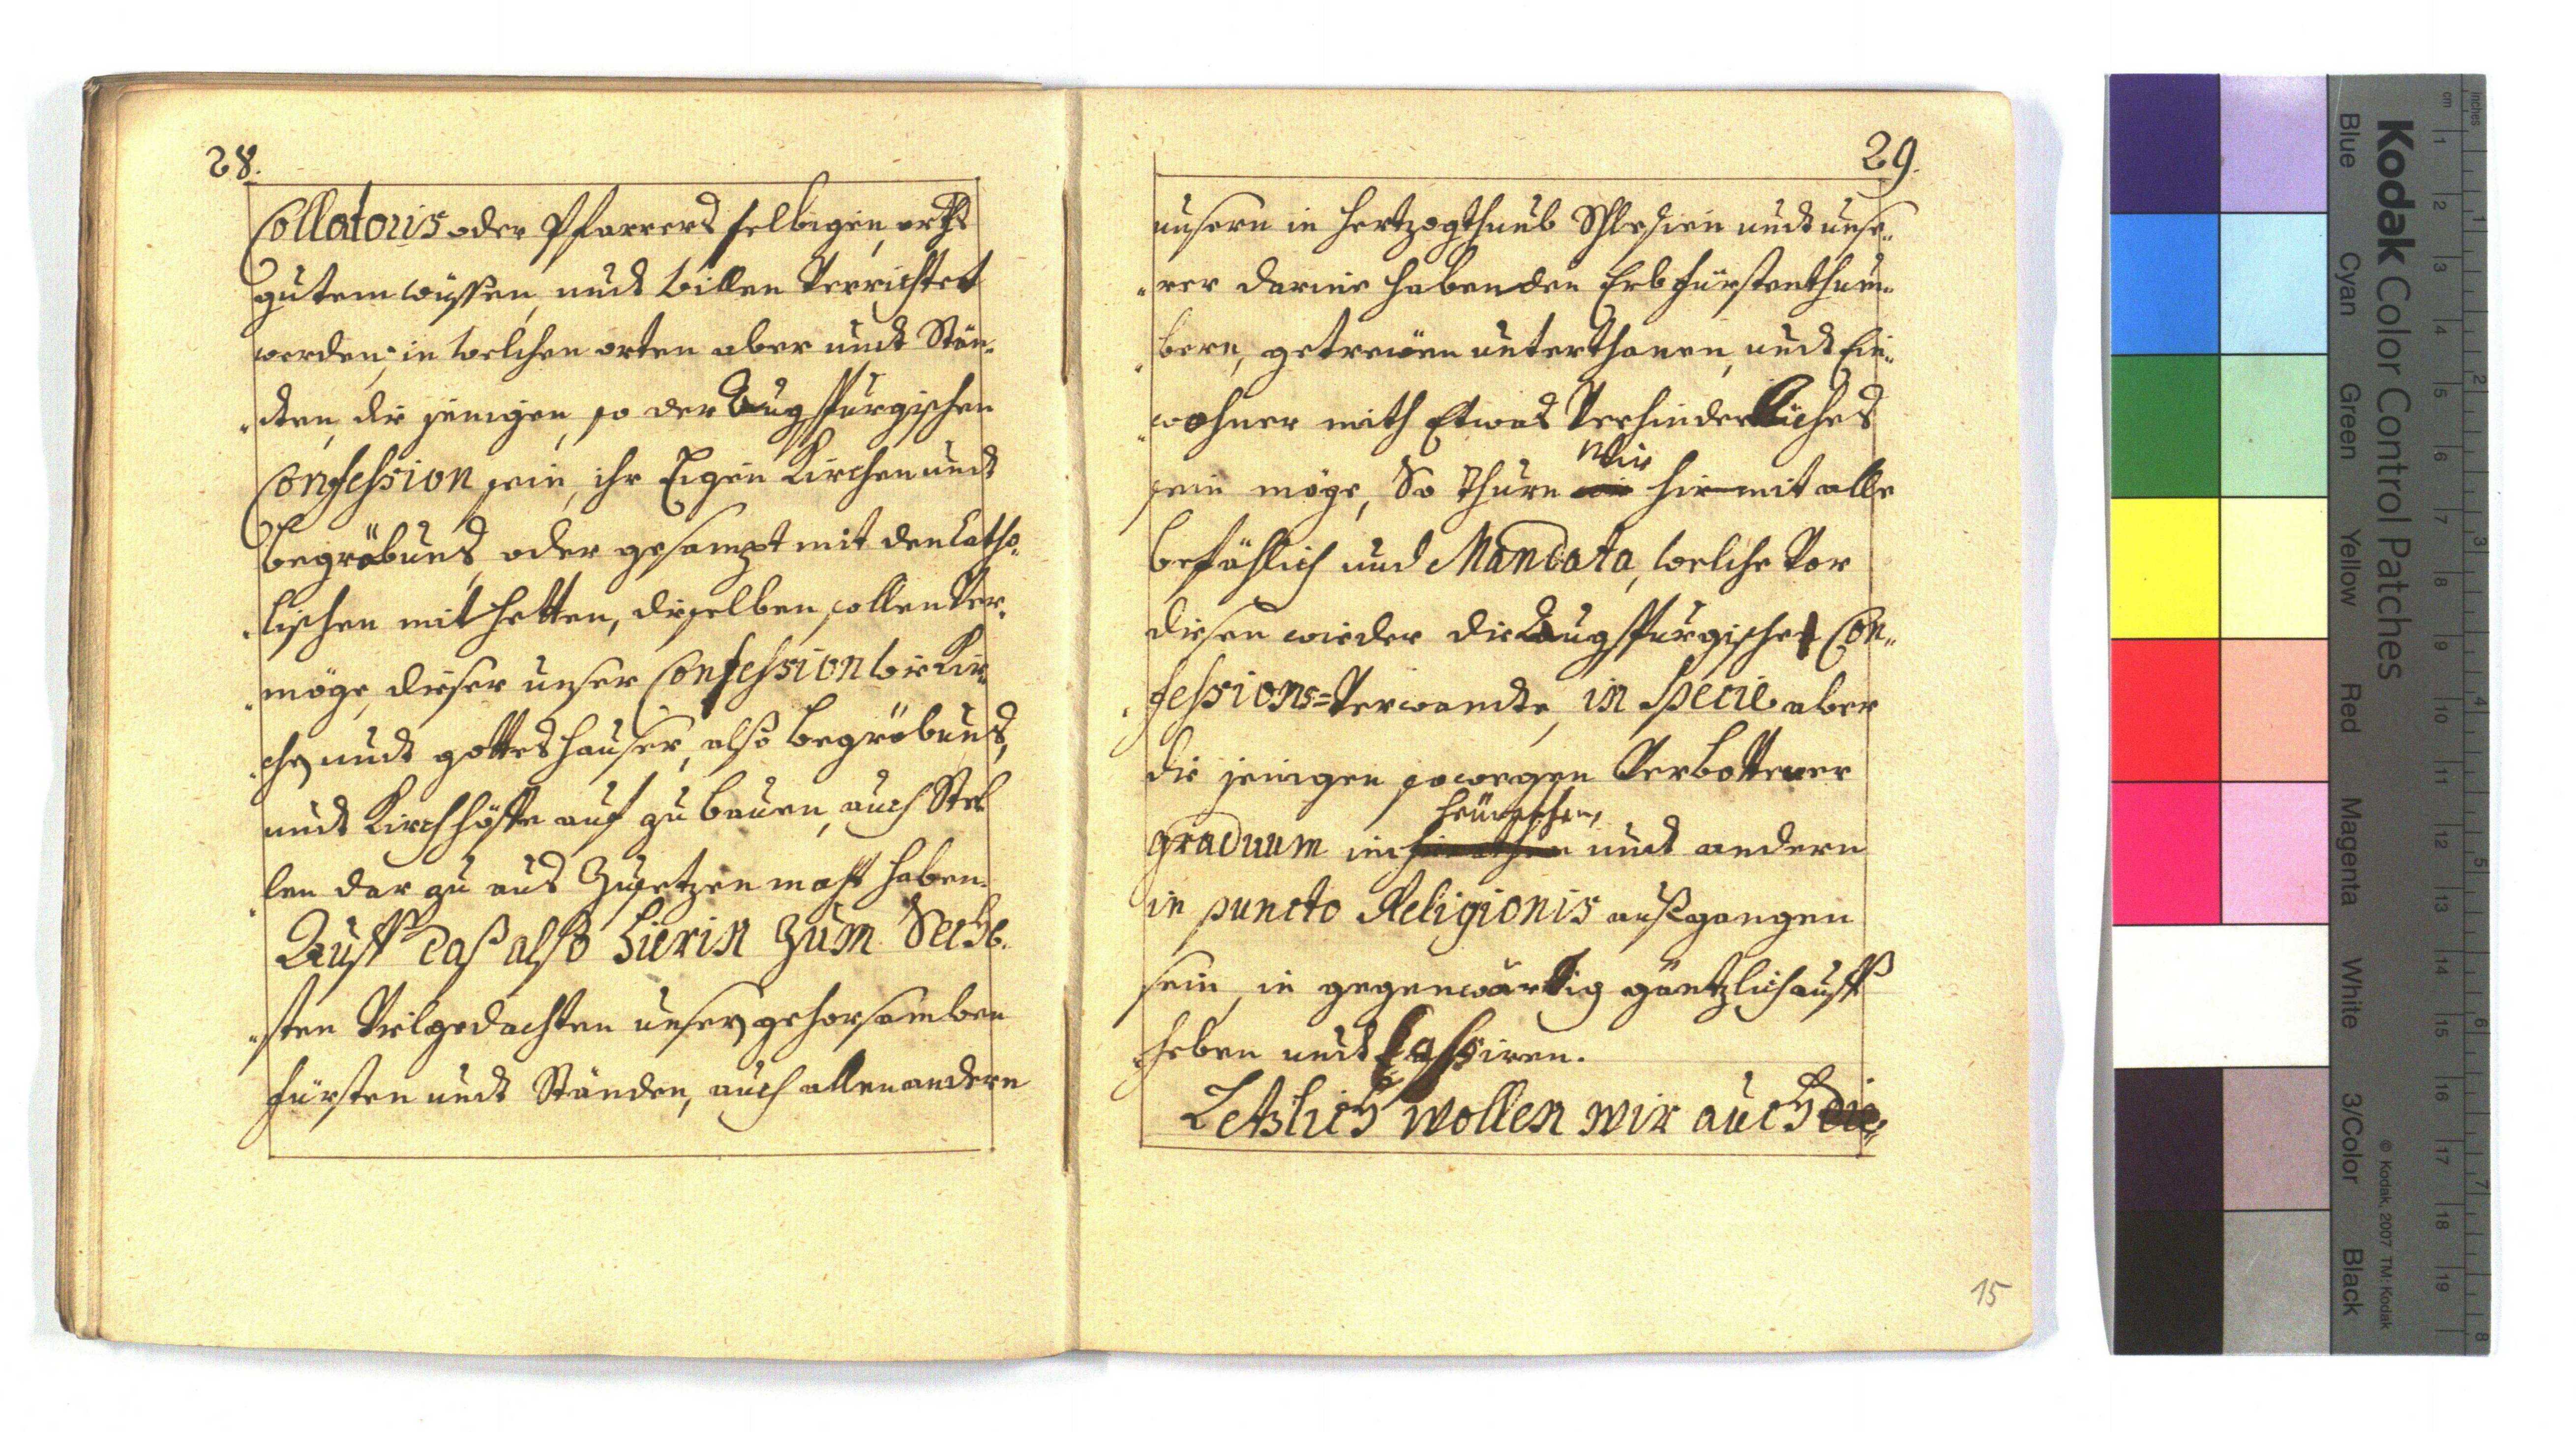 28.
Collatoris oder Pfarrers selbigen orths
gutem wüssen, undt willen Verrichtet
werden, in welchen orten aber undt Stän„
„dten, die jenigen, so der Augspurgischen
Confession sein, ihr Eigen Kirchen undt
begröbnus, oder gesampt mit den Catho„
„lischen mit hetten, dieselben sollen Ver„
„möge, dieser unser Confession wie Kir„
„chen undt gotteshauser, also begröbnus,
undt Kirchhöffe auf zu bauen, auch Stel
„len dar zu aus Zusetzen macht haben.
Auff daß also hierin zum Sechs„
„sten Vielgedachten unsern gehorsamben
fürsten undt Ständen, auch allen andern
29.
unsern in Hertzogthumb Schlesien undt unse„
„rer darinne habenden Erbfürstenthum„
„bern, getreüen unterthanen, undt Ein„
„wohner nith Etwas Verhinderliches
Wir
sein möge, So thuen wir hir mit alle
befählich und Mandata, welche Vor
diesen wieder die Augspurgische Con„
„fessions=Verwandte, in specie aber
die jenigen so wegen Verbottener
heürathen,
graduum in heirathen undt andern
in puncto Religionis außgangen
sein, in gegenwärtig gäntzlich auff
„heben undt Cassiren.
Letzlich wollen wir auch die„
15
Kodak Color Control Patches
© Kodak, 2007 TM: Kodak
Blue Cyan Green Yellow Red Magenta White 3/Color Black
inches 1 2 3 4 5 6 7 8
cm 1 2 3 4 5 6 7 8 9 10 11 12 13 14 15 16 17 18 19